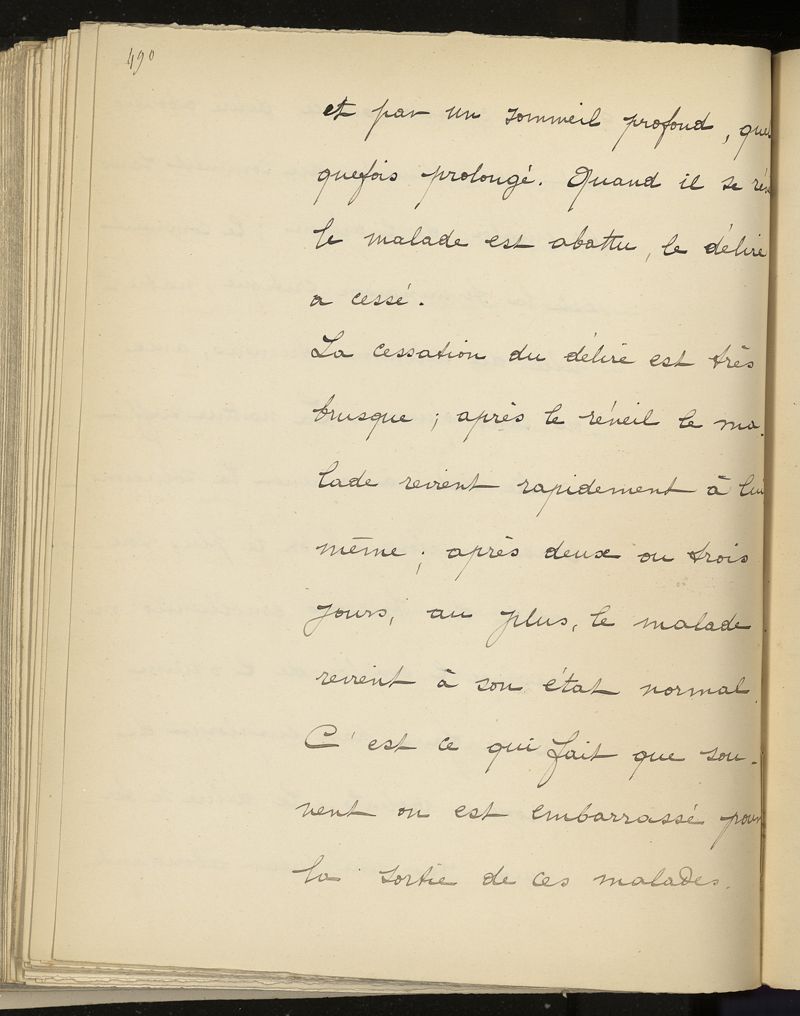 490
et par un sommeil profond, quel
quefois prolongé. Quand il se rév
le malade est abattu, le délire
a cessé.
La cessation du délire est très
brusque ; après le réveil le ma-
lade revient rapidement à lui
même ; après deux ou trois
jours, au plus, le malade
revient à son état normal.
C'est ce qui fait que sou-
vent on est embarrassé pour
la sortie de ces malades.